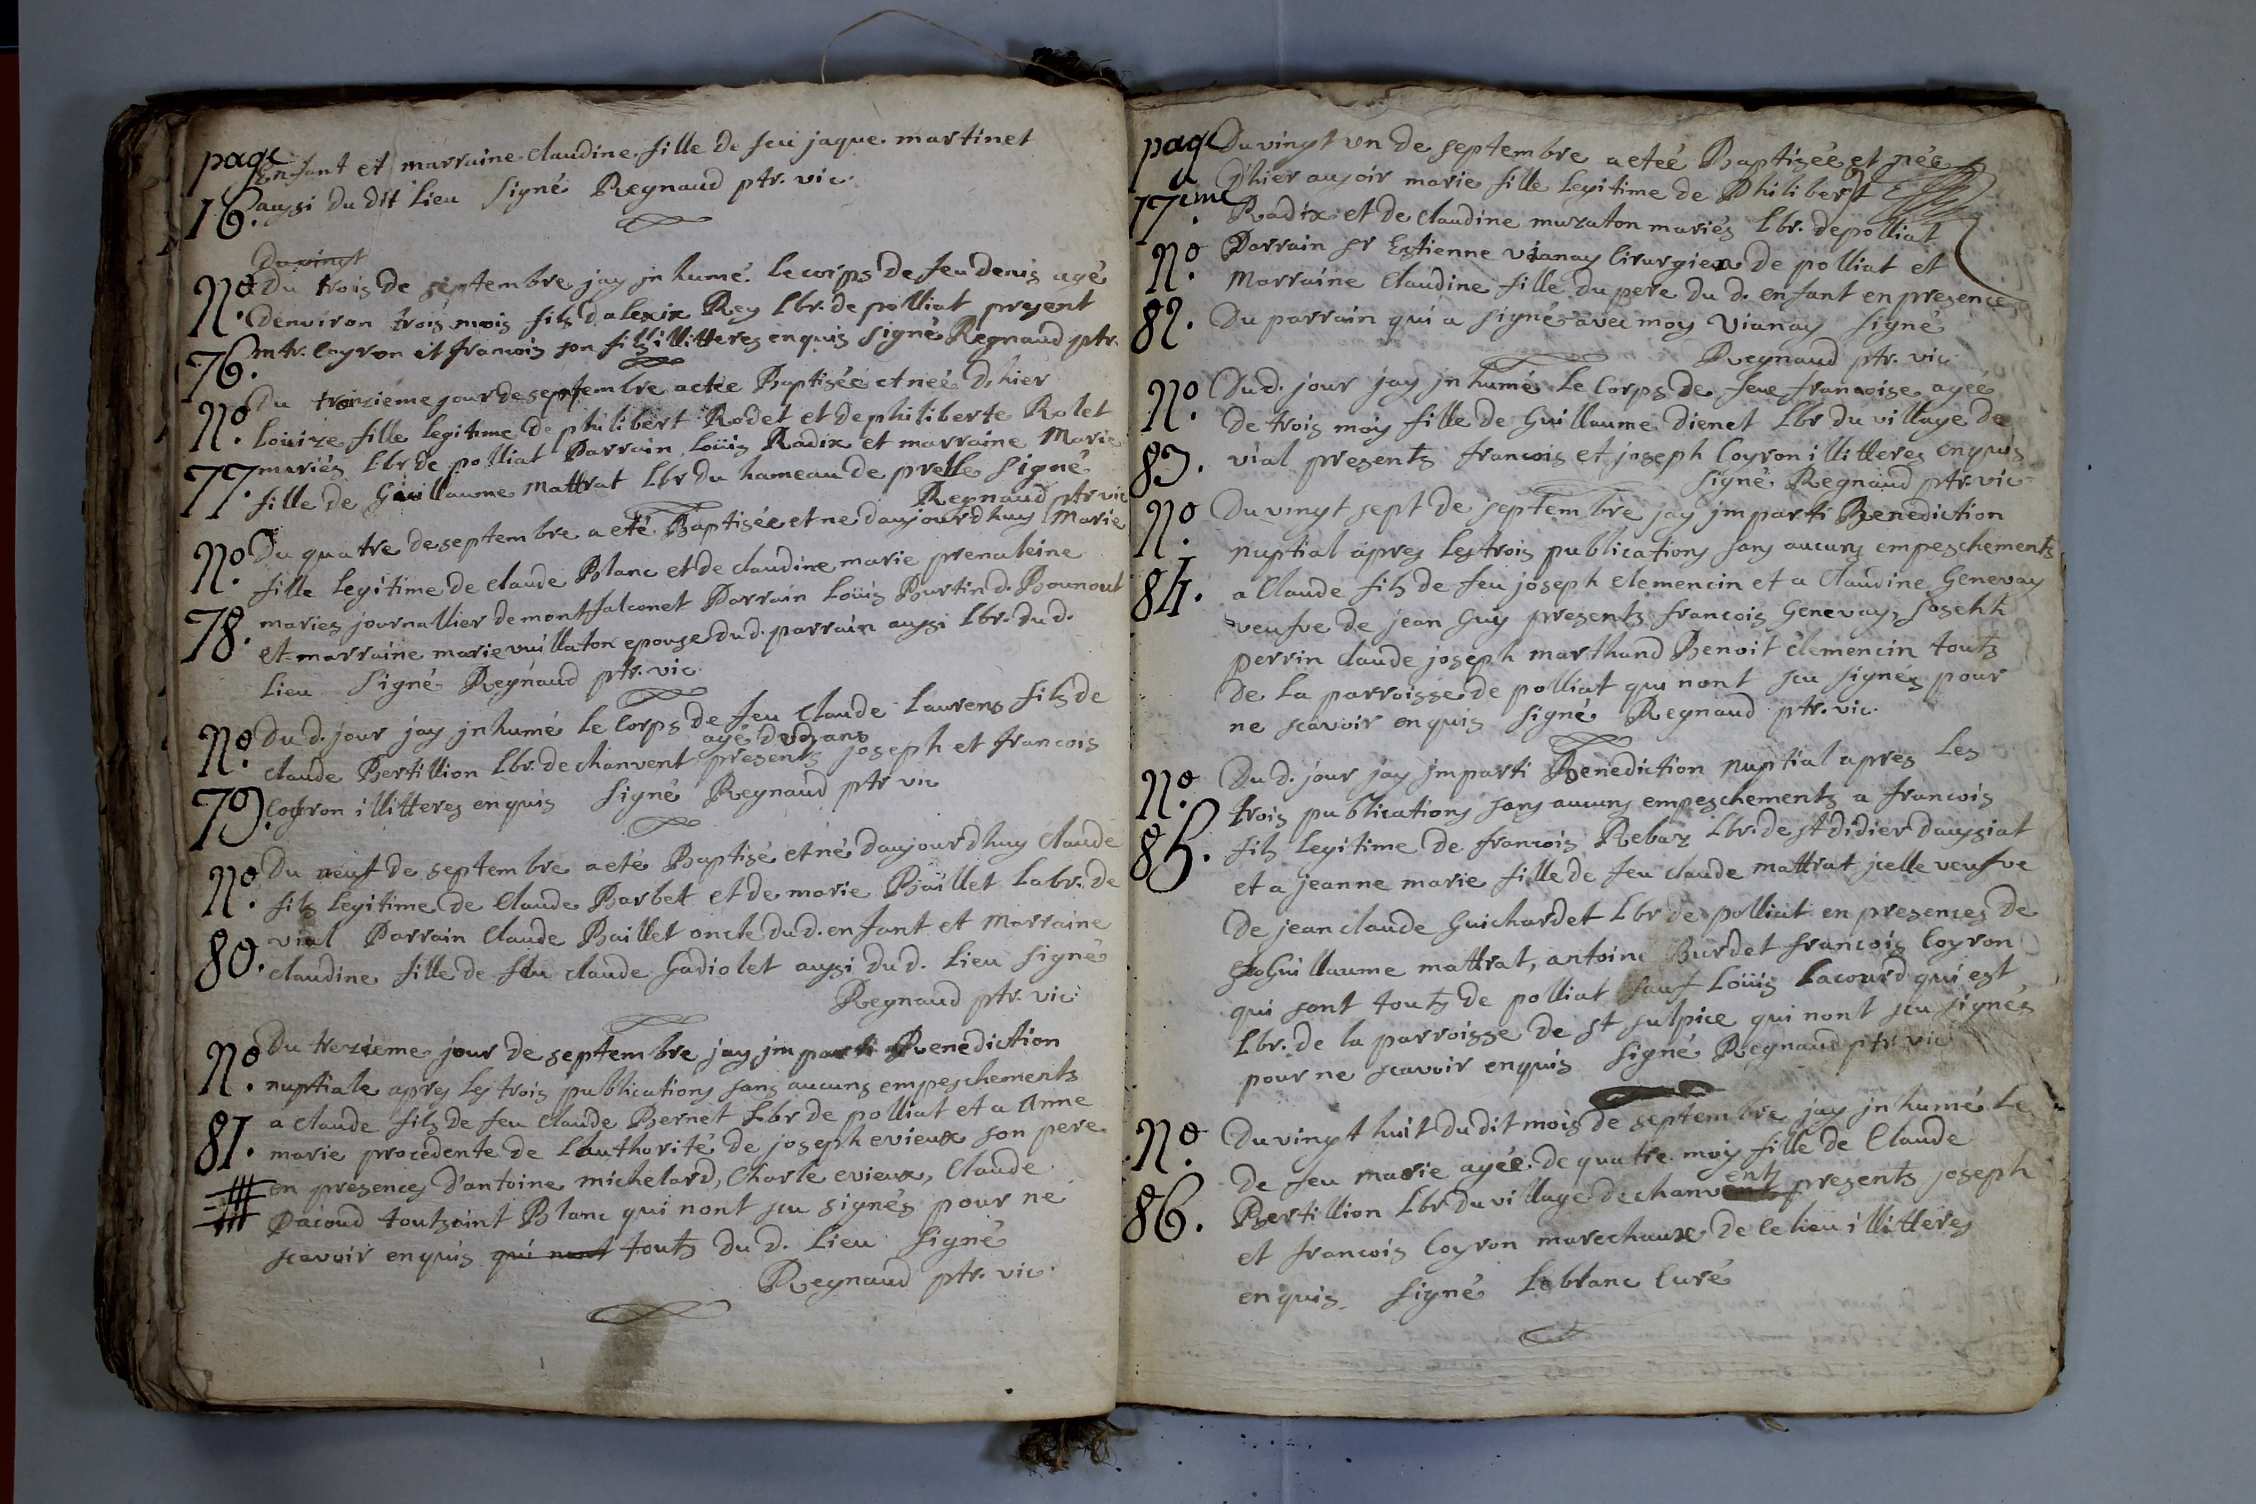 page
16.
Enfant et marraine claudine fille de feu jaque martinet
aussi du dit Lieu signé Regnaud ptr. vic.
Du vingt
No. 76.
Du trois de septembre jay jnhumé le corps de feu denis agé
denviron trois mois fils dalexix Rey Lbr. de polliat present
mtr. Coyron et francois son fils illitteres enquis signé Regnaud ptr.
No. 77.
Du troizieme jour de septembre a etée Baptisée et neé d'hier
Loüize fille legitime de philibert Rodet et de philiberte Rolet
mariés Lbr de polliat Parrain Loüis Radix et marraine Marie
fille de Guillaume Mattrat Lbr du hameau de prelle signé
Regnaud ptr vic
No. 78.
Du quatre de septembre a eté Baptisée et ne daujourdhuy Marie
fille legitime de claude Blanc et de claudine marie prenaleine
maries journallier de montfalconet Parrain Loüis Burtin d. Bounout
et marraine marie vuillaton epouse du d. parrain aussi Lbr. du d.
Lieu signé Regnaud ptr. vic.
No. 79.
Du d. jour jay jnhumé le Corps de feu Claude Laurens fils de
agé de ans
claude Bertillion Lbr. de chanvent presents joseph et francois
Coyron illitteres enquis signé Regnaud ptr vic
No. 80.
Du neuf de septembre a eté Baptisé et né daujourdhuy Claude
fils legitime de Claude Barbet et de marie Baillet Labr. de
vial Parrain Claude Baillet oncle du d. enfant et Marraine
claudine fille de feu claude Gadiolet aussi du d. Lieu signé
Regnaud ptr. vic.
No. 81.
Du trezieme jour de septembre jay jmparti Benediction
nuptiale apres les trois publications sans aucuns empeschements
a claude fils de feu claude Bernet Lbr de polliat et a Anne
marie procedente de Lauthorité de joseph evieux son pere
en presences d'antoine michelard, Charle evieux, Claude
Pacoud toutsaint Blanc qui nont scu signés pour ne
scavoir enquis qui nont touts du d. Lieu signé
Regnaud ptr. vic.
page
17eme
Du vingt un de septembre a eteé Baptizée et née
d'hier ausoir marie fille legitime de Philibert
Radix et de claudine muzaton mariés Lbr. de polliat
No. 82.
Parrain sr Estienne vianay Cirurgien de polliat et
Marraine Claudine fille du pere du d. enfant en presence
Du parrain qui a signé avec moy Vianay signé
Regnaud ptr. vic.
No. 83.
Du d. jour jay jnhumé le Corps de feue francoise ageé
de trois moy fille de Guillaume Dienet Lbr du village de
vial presents francois et joseph Coyron illitteres enquis
signé Regnaud ptr. vic
No. 84.
Du vingt sept de septembre jay jmparti Benediction
nuptial apres les trois publications sans aucuns empeschements
a Claude fils de feu joseph clemencin et a Claudine Genevay
veufve de jean Guy presents francois Genevay, Josehh
perrin claude joseph marthand Benoit clemencin touts
de la parroisse de polliat qui nont scu signés pour
ne scavoir enquis signé Regnaud ptr. vic.
No. 85.
Du d. jour jay jmparti Benediction nuptial apres les
trois publications sans aucuns empeschements a francois
fils legitime de francois Rebaz Lbr. de st didier daussiat
et a jeanne marie fille de feu claude mattrat jcelle veufve
de jean claude Guichardet Lbr de polliat en presences de
Guillaume mattrat, antoine Burdet francois Coyron
qui sont touts de polliat sauf Loüis Lacourd qui est
Lbr. de la parroisse de st sulpice qui nont scu signés
pour ne scavoir enquis signé Regnaud ptr. vic
No. 86.
Du vingt huit du dit mois de septembre jay jnhumé le
de feu marie ageé de quatre moy fille de Claude
ents
Bertillion Lbr du village de chanvent presents joseph
et francois Coyron marechaux de ce lieu illitteres
enquis signé Leblanc Curé